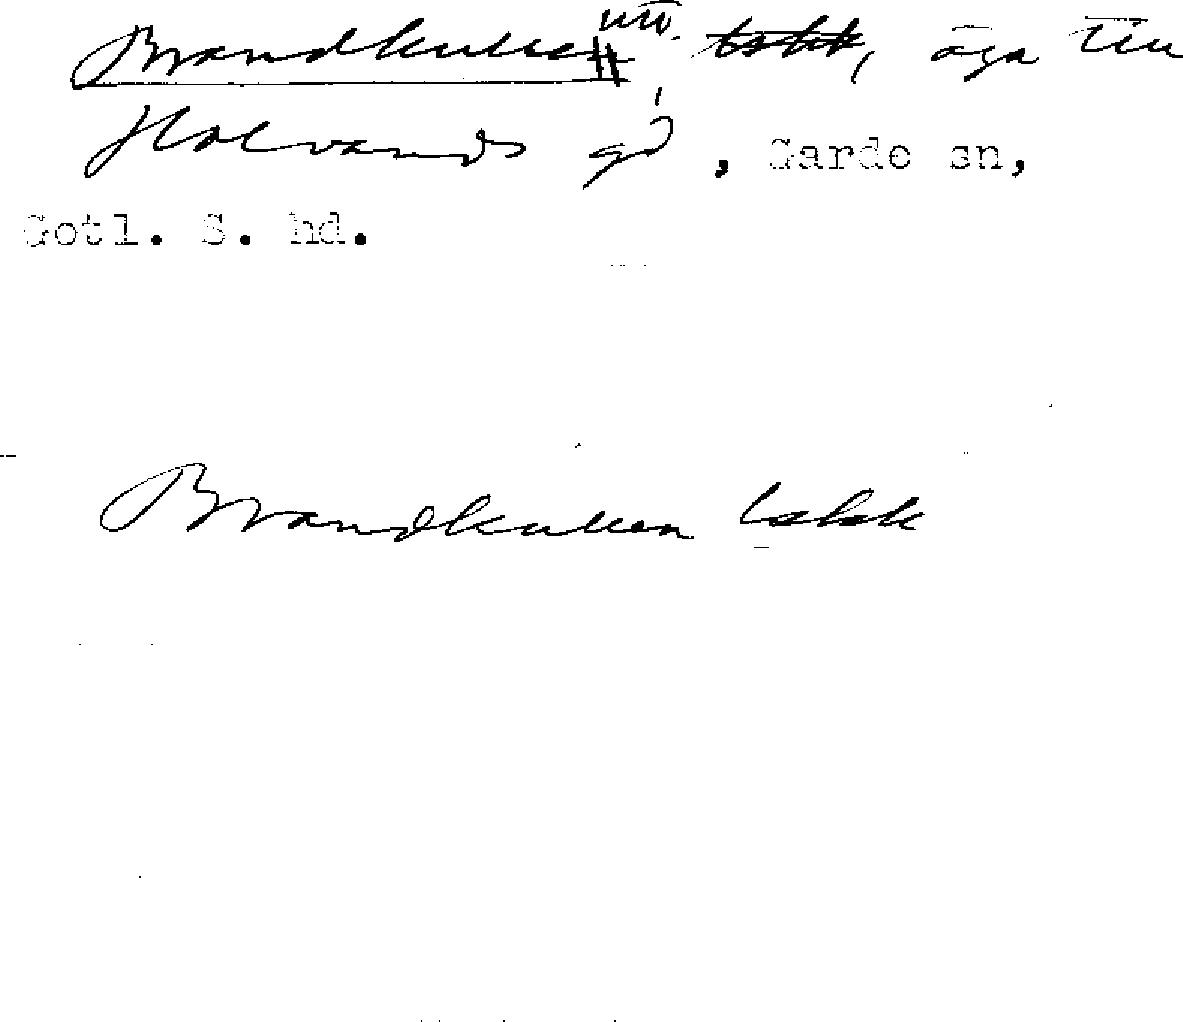 Brandkullen utv. lskk, äga till
Halvands gd, Garde sn,
Gotl. S. hd.
Brandkullen lskk